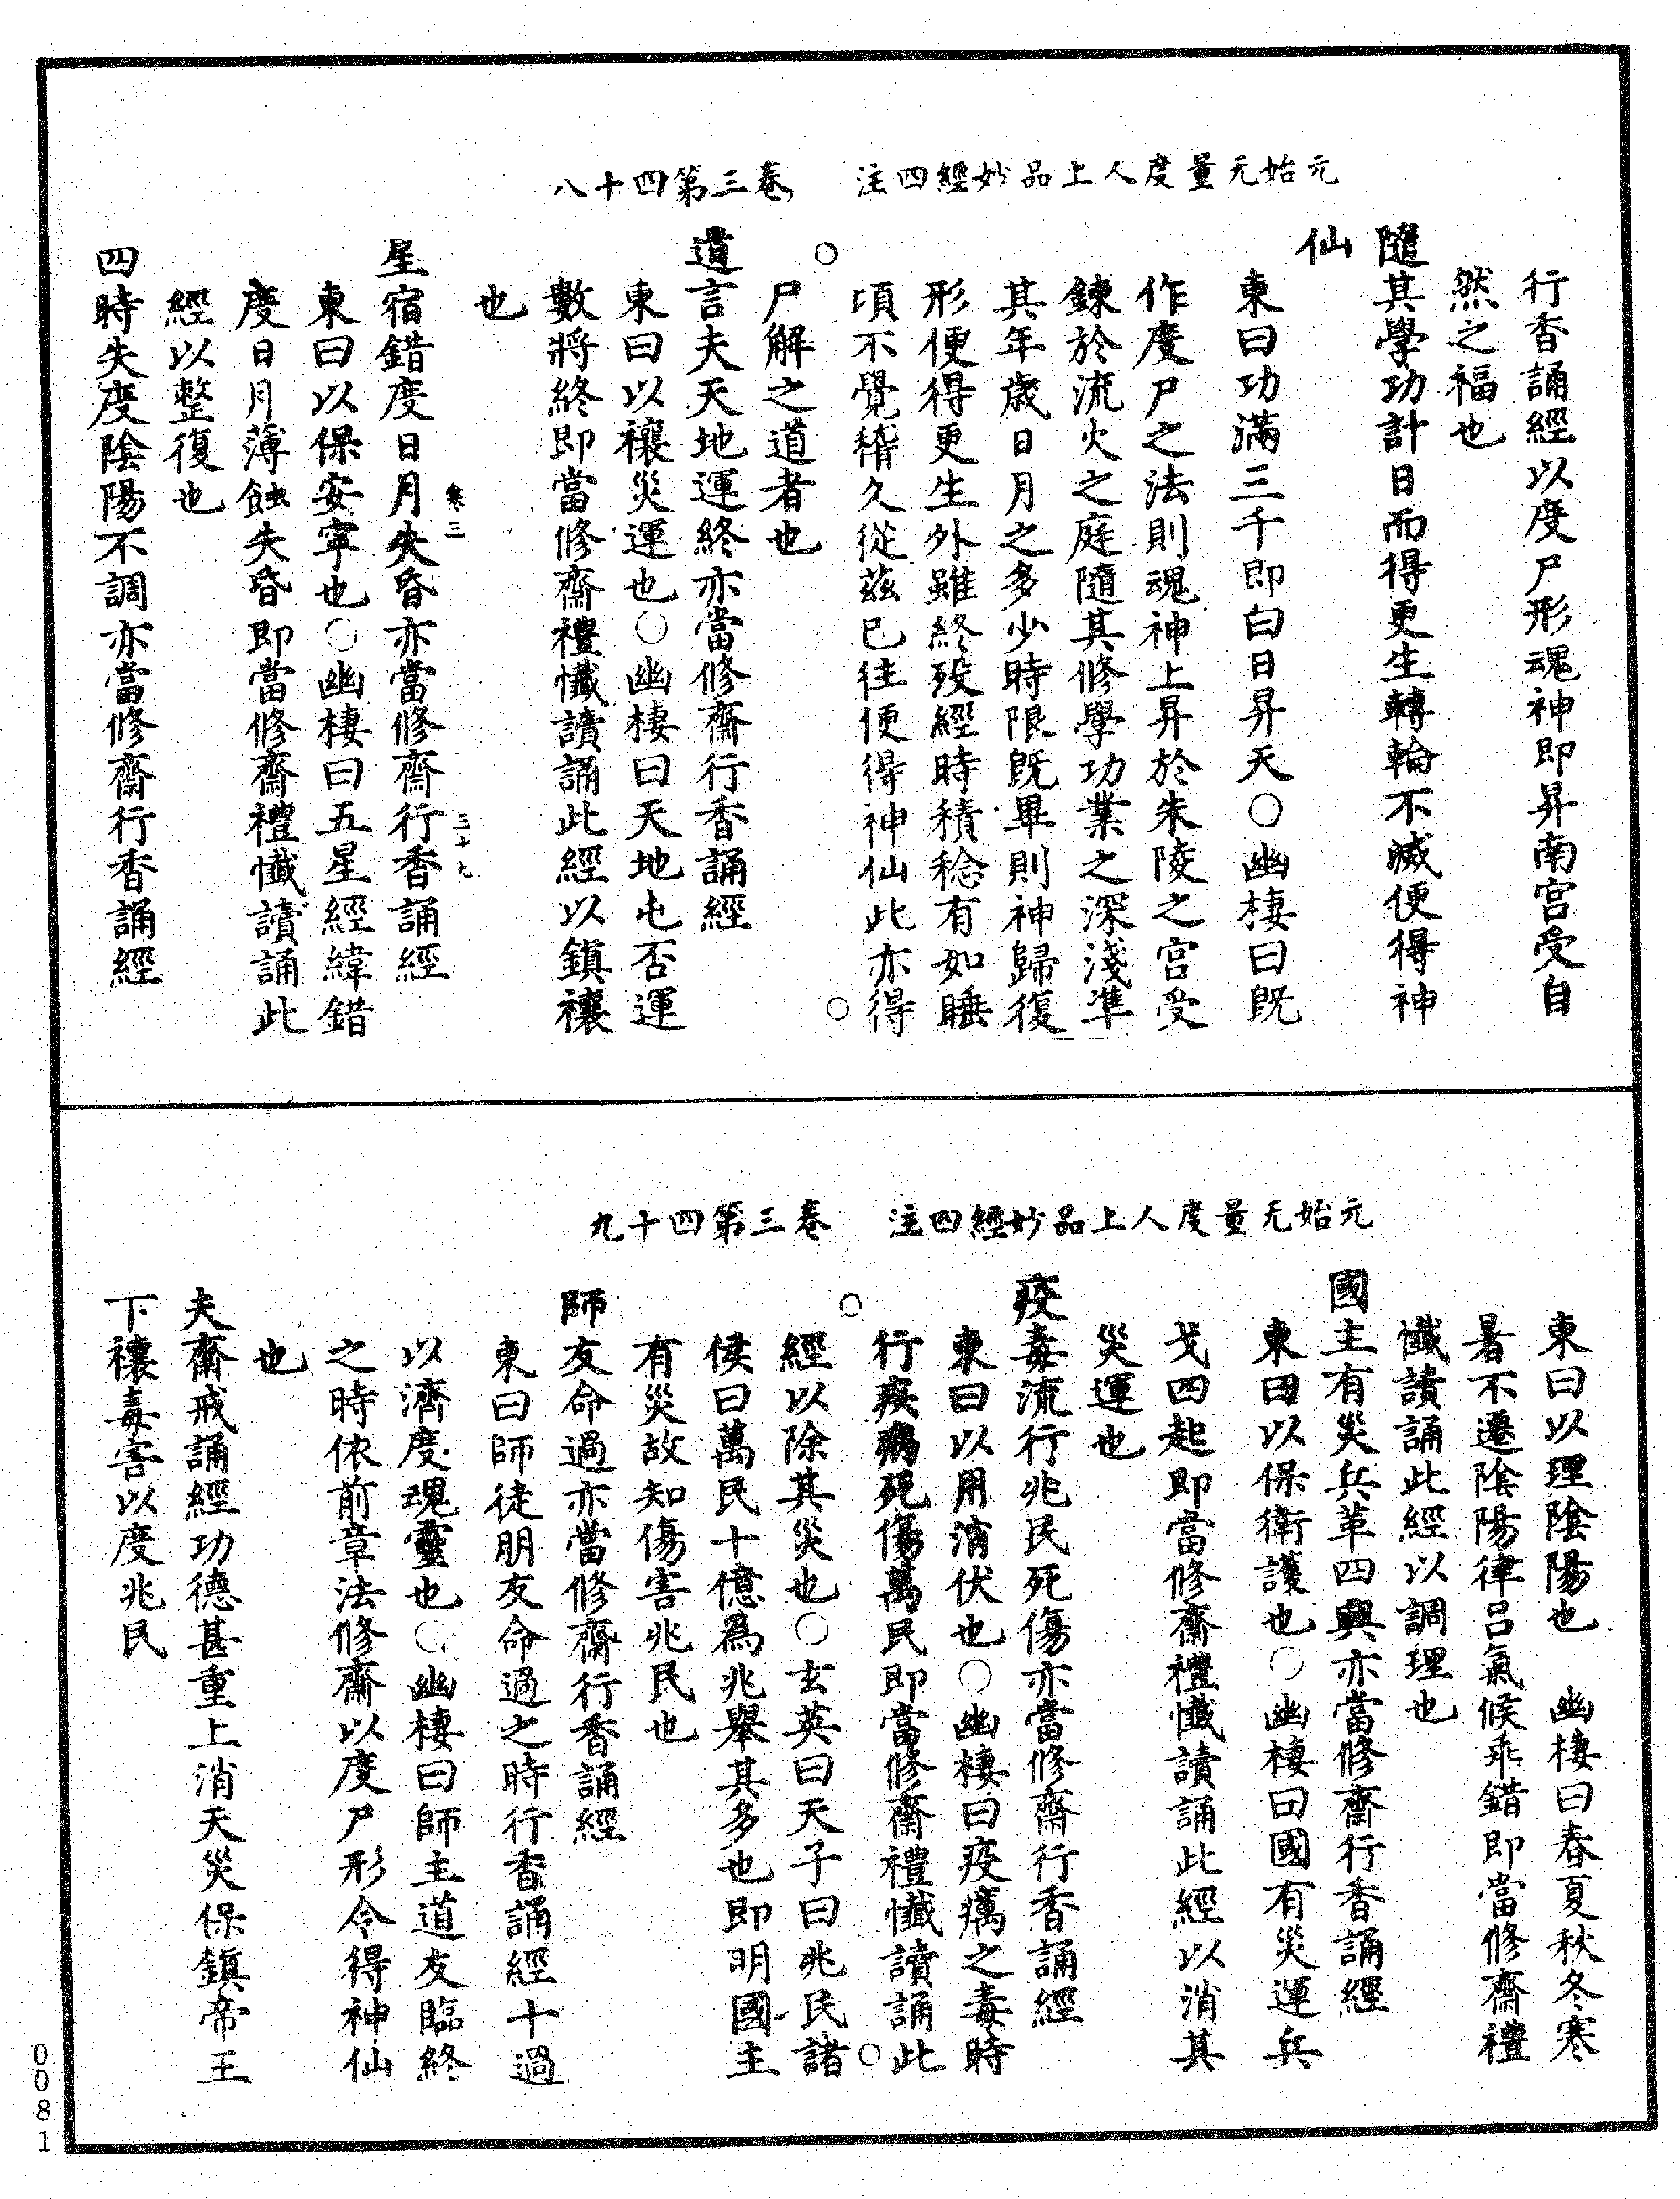 元始无量度人上品妙經四注　卷三第四十八
行香誦經以度尸形魂神即昇南宮受自
然之福也
隨其學功計日而得更生轉輪不滅便得神
仙
東曰功滿三千即白日昇天○幽棲曰既
作度尸之法則魂神上昇於朱陵之宮受
鍊於流火之庭隨其修學功業之深淺準
其年歲日月之多少時限既畢則神歸復
形便得更生外雖終歿經時積稔有如睡
頃不覺稽久從茲已往便得神仙此亦得
尸解之道者也
道言夫天地運終亦當修齋行香誦經
東曰以禳災運也○幽棲曰天地屯否運
數將終即當修齋禮懺讀誦此經以鎮禳
也
寒三　三十九
星宿錯度日月失昏亦當修齋行香誦經
東曰以保安寧也○幽棲曰五星經緯錯
度日月薄蝕失昏即當修齋禮懺讀誦此
經以整復也
四時失度陰陽不調亦當修齋行香誦經
元始无量度人上品妙經四注　卷三第四十九
東曰以理陰陽也　幽棲曰春夏秋冬寒
暑不遷陰陽律呂氣候乖錯即當修齋禮
懺讀誦此經以調理也
國主有災兵革四興亦當修齋行香誦經
東曰以保衛護也○幽棲曰國有災運兵
戈四起即當修齋禮懺讀誦此經以消其
災運也
疫毒流行兆民死傷亦當修齋行香誦經
東曰以用消伏也○幽棲曰疫癘之毒時
行疾病死傷萬民即當修齋禮懺讀誦此
經以除其災也○玄英曰天子曰兆民諸
侯曰萬民十億為兆舉其多也即明國主
有災故知傷害兆民也
師友命過亦當修齋行香誦經
東曰師徒朋友命過之時行香誦經十過
以濟度魂靈也○幽棲曰師主道友臨終
之時依前章法修齋以度尸形令得神仙
也
夫齋戒誦經功德甚重上消天災保鎮帝王
下禳毒害以度兆民
0081